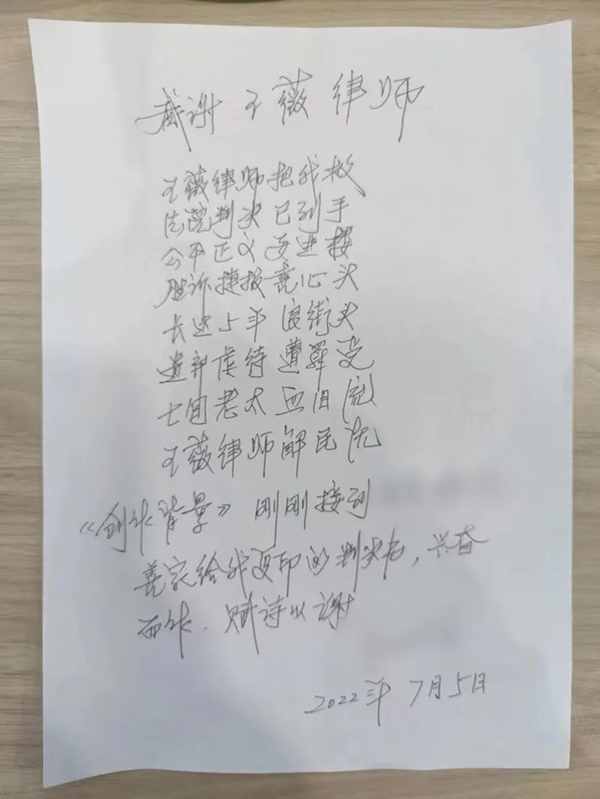 感谢王薇律师
王薇律师把我救
法院判决已到手
公平正义要迎接
胜诉捷报亮心头
长达5年流街头
遗弃虐待遭罪受
七旬老太血泪流
王薇律师解民忧
《创作背景》刚刚接到
给我复印的判决书，兴奋
而作，赋诗以谢
2022年7月5日